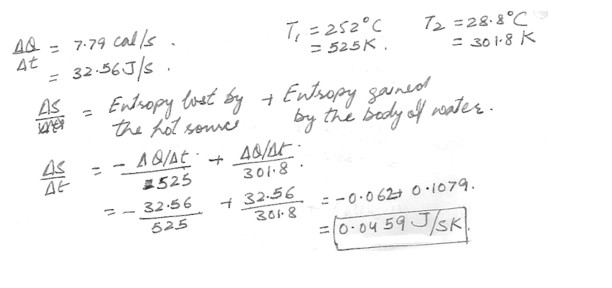 ΔQ/Δt = 7.79 cal/s .
T₁ = 252°C
T₂ = 28.8°C
= 32.56 J/s .
= 525K .
= 301.8 K
ΔS = Entropy lost by the hot source + Entropy gained by the body of water.
ΔS/Δt = - ΔQ/Δt / 525 + ΔQ/Δt / 301.8 .
= - 32.56/525 + 32.56/301.8 = -0.062+ 0.1079.
= 0.0459 J/sK